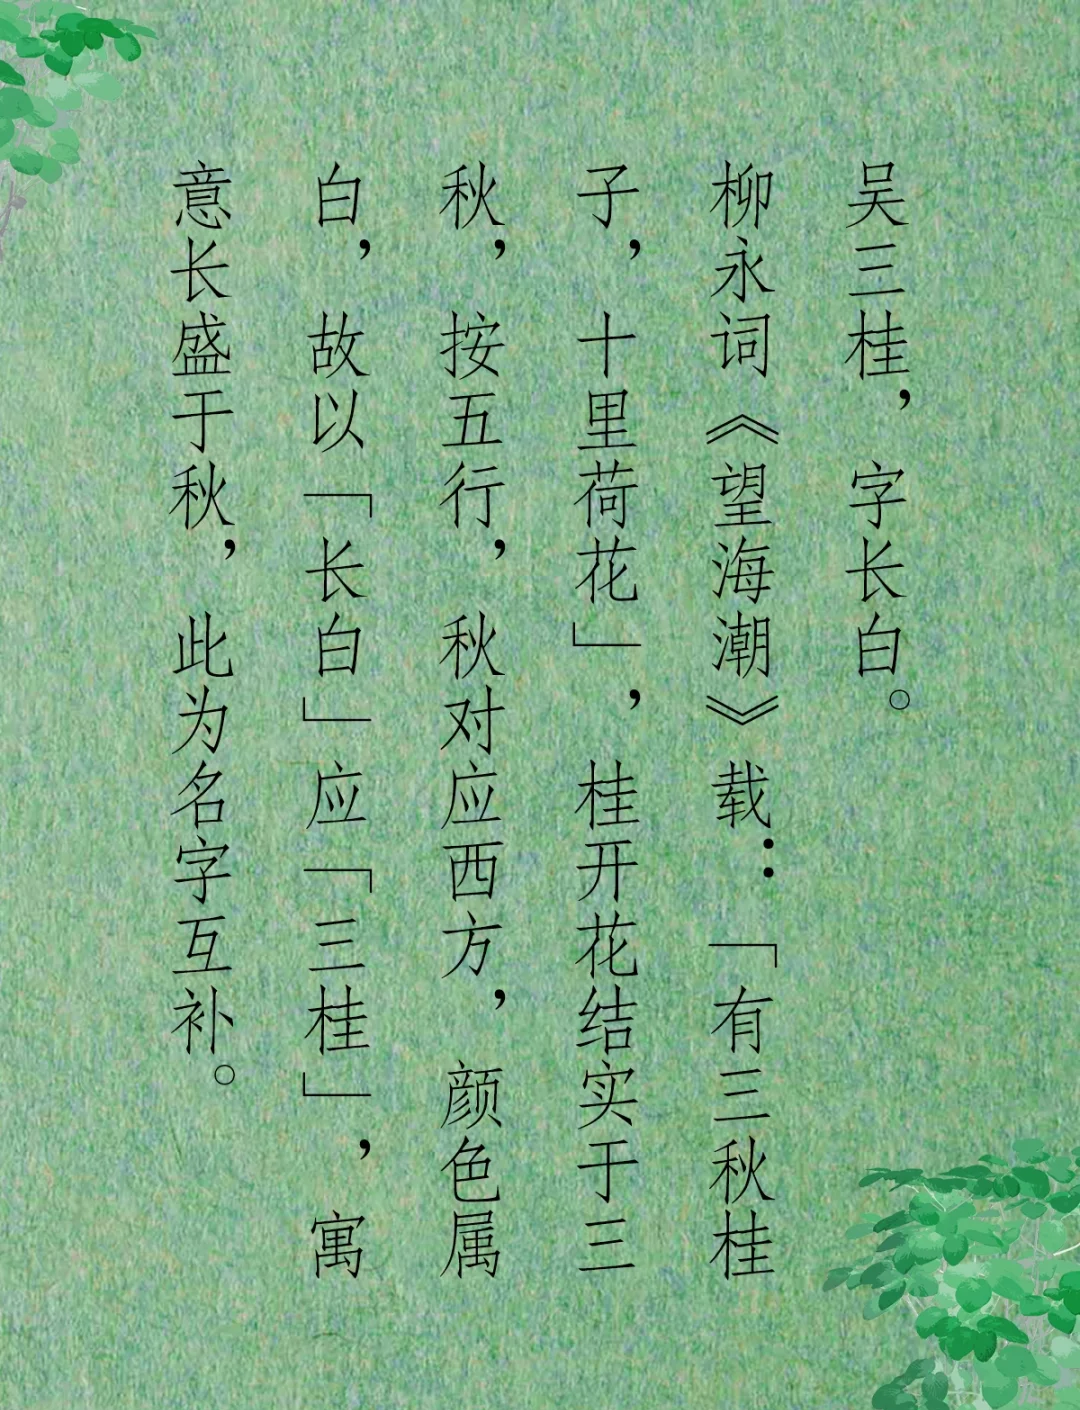 吴三桂，字长白。
柳永词《望海潮》载：「有三秋桂
子，十里荷花」，桂开花结实于三
秋，按五行，秋对应西方，颜色属
白，故以「长白」应「三桂」，寓
意长盛于秋，此为名字互补。